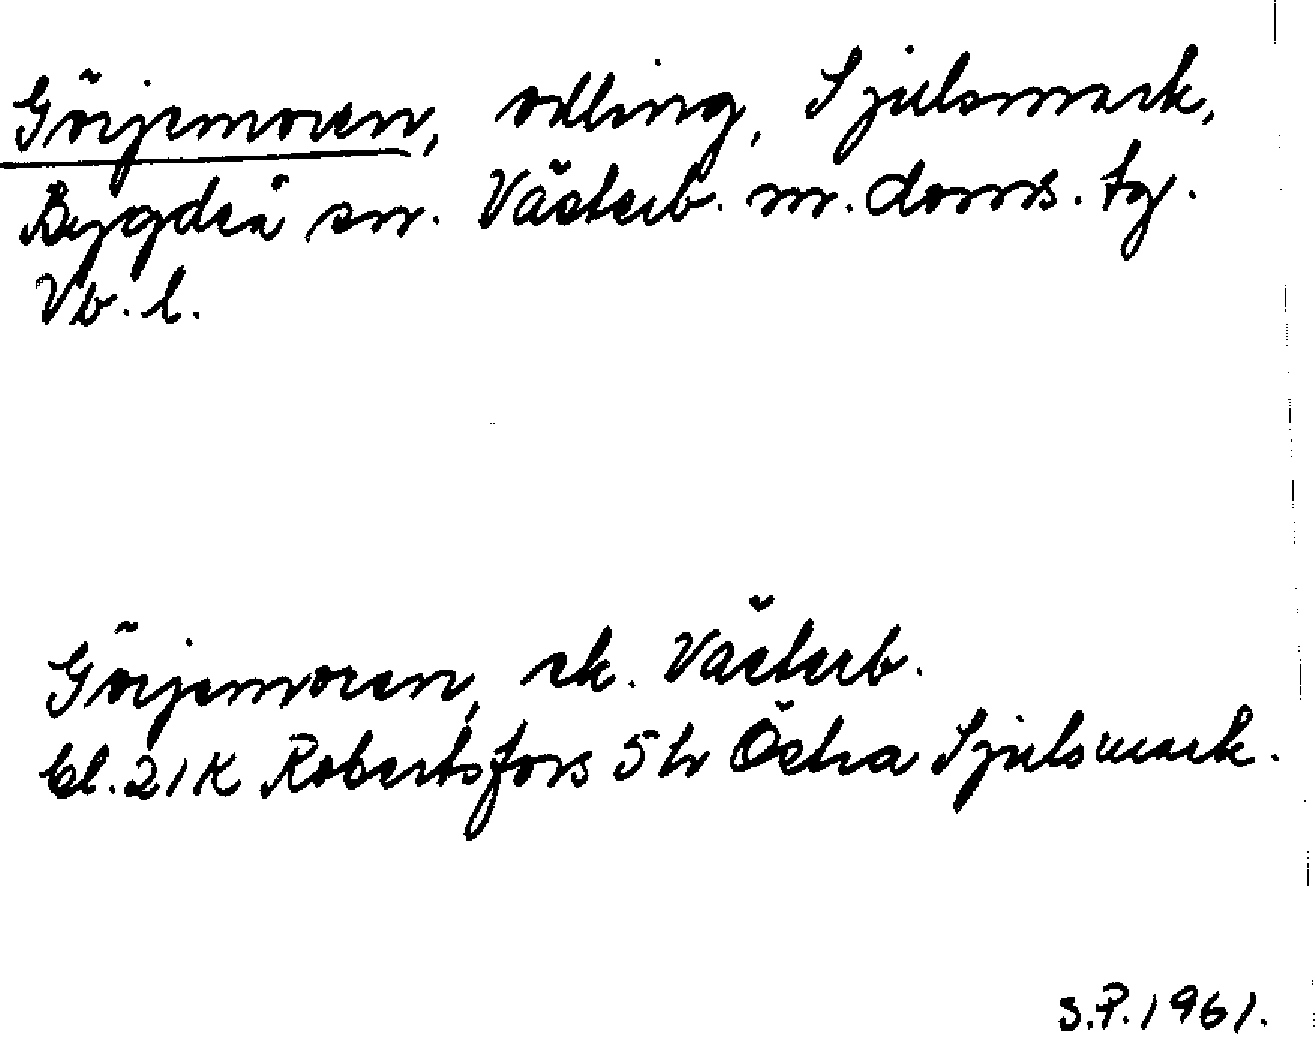 Görjemoren, odling, Sjulsmark,
Bygdeå sn. Västerb. m. doms. tg.
Vb. l.
Görjemoren, ek. Västerb.
bl. 21K Robertsfors 5 h Östra Sjulsmark.
S.P. 1961.